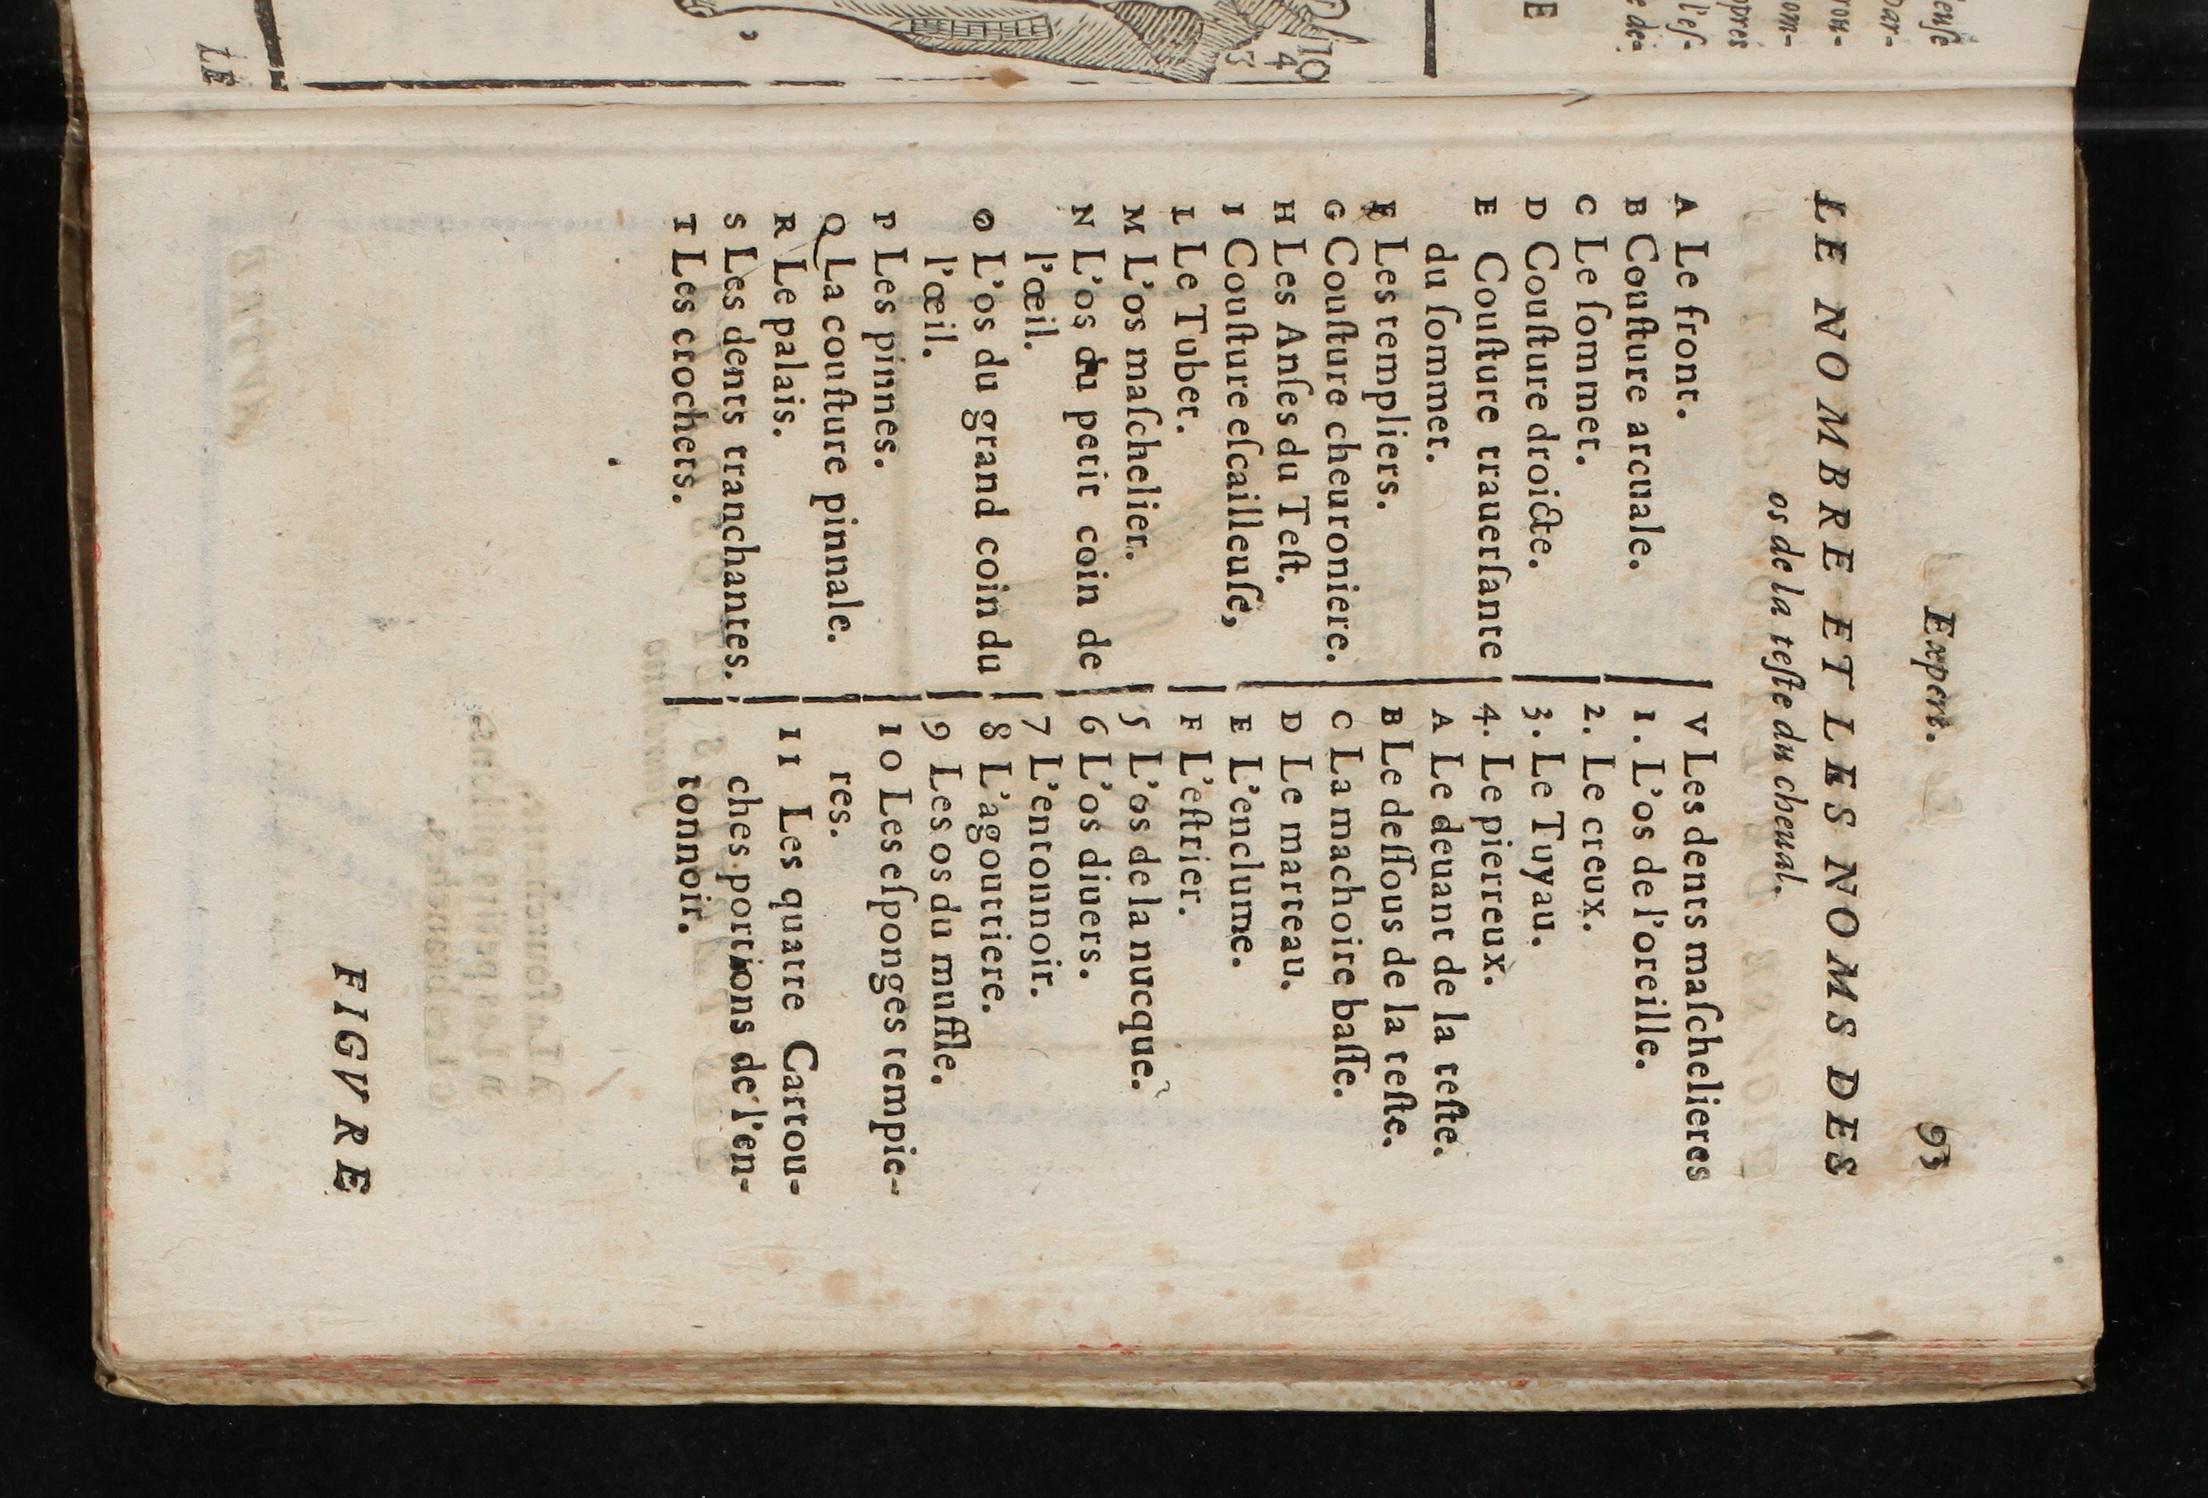 Expert. 93
LE NOMBRE ET LES NOMS DES
os de la teſte du cheual.
A Le front.
B Couſture arcuale.
C Le ſommet.
D Couſture droicte.
E Couſture trauerſante
du ſommet.
F Les templiers.
G Couſture cheuroniere.
H Les Anſes du Teſt.
I Couſture eſcailleuſe,
L Le Tubet.
M L'os maſchelier.
N L'os du petit coin de
l'œil.
O L'os du grand coin du
l'œil.
P Les pinnes.
Q La couſture pinnale.
R Le palais.
S Les dents tranchantes.
T Les crochets.
V Les dents maſchelieres
1. L'os de l'oreille.
2. Le creux.
3. Le Tuyau.
4. Le pierreux.
A Le deuant de la teſte.
B Le deſſous de la teſte.
C La machoire baſſe.
D Le marteau.
E L'enclume.
F L'eſtrier.
5 L'os de la nucque.
6 L'os diuers.
7 L'entonnoir.
8 L'agouttiere.
9 Les os du muffle.
10 Les eſponges tempie-
res.
11 Les quatre Cartou-
ches portions de l'en-
tonnoir.
FIGVRE
euſe
par-
rou-
om-
pres
l'eſ-
e de-
E
10
4
3
LE